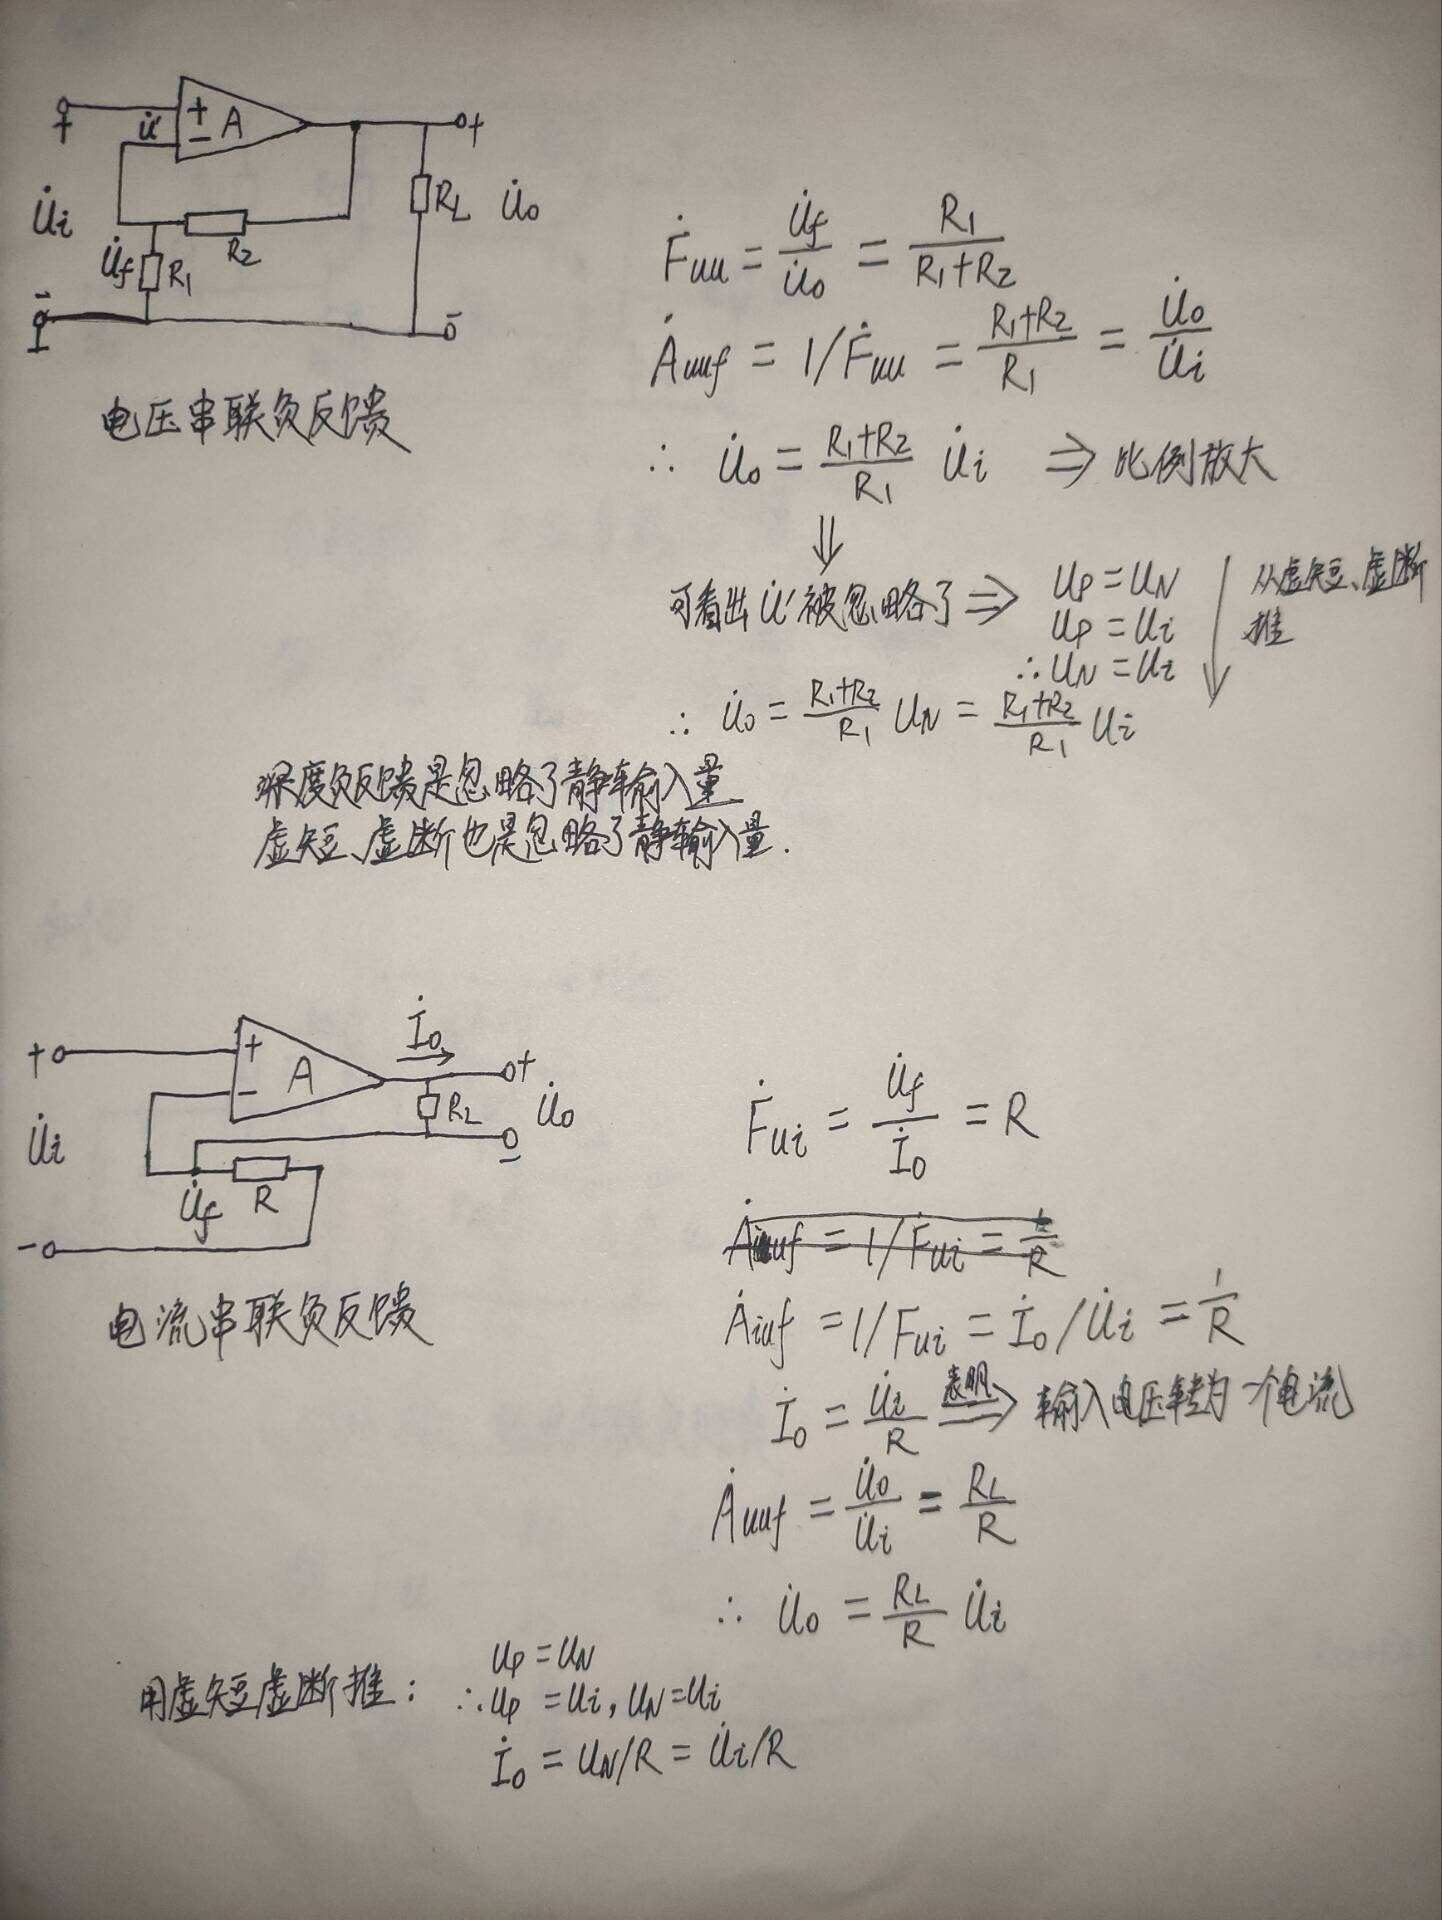 + A −
U̇' 
+
U̇i
R2
U̇f R1
RL U̇o
−
电压串联负反馈
Ḟuu = U̇f/U̇o = R1/(R1+R2)
Ȧuuf = 1/Ḟuu = (R1+R2)/R1 = U̇o/U̇i
∴ U̇o = (R1+R2)/R1 U̇i ⇒ 比例放大
⇓
可看出 U̇' 被忽略了 ⇒ UP = UN
UP = Ui
∴ UN = Ui
从虚短、虚断
推
∴ U̇o = (R1+R2)/R1 UN = (R1+R2)/R1 Ui
深度负反馈是忽略了静输入量
虚短、虚断也是忽略了静输入量.
İo
+ A −
+
U̇i
RL U̇o
U̇f R
−
电流串联负反馈
Ḟui = U̇f/İo = R
Ȧiuf = 1/Fui = İo/U̇i = 1/R
İo = U̇i/R 表明⇒ 输入电压转为一个电流
Ȧuuf = U̇o/U̇i = RL/R
∴ U̇o = RL/R U̇i
用虚短虚断推:
UP = UN
∴ UP = Ui, UN = Ui
İo = UN/R = U̇i/R